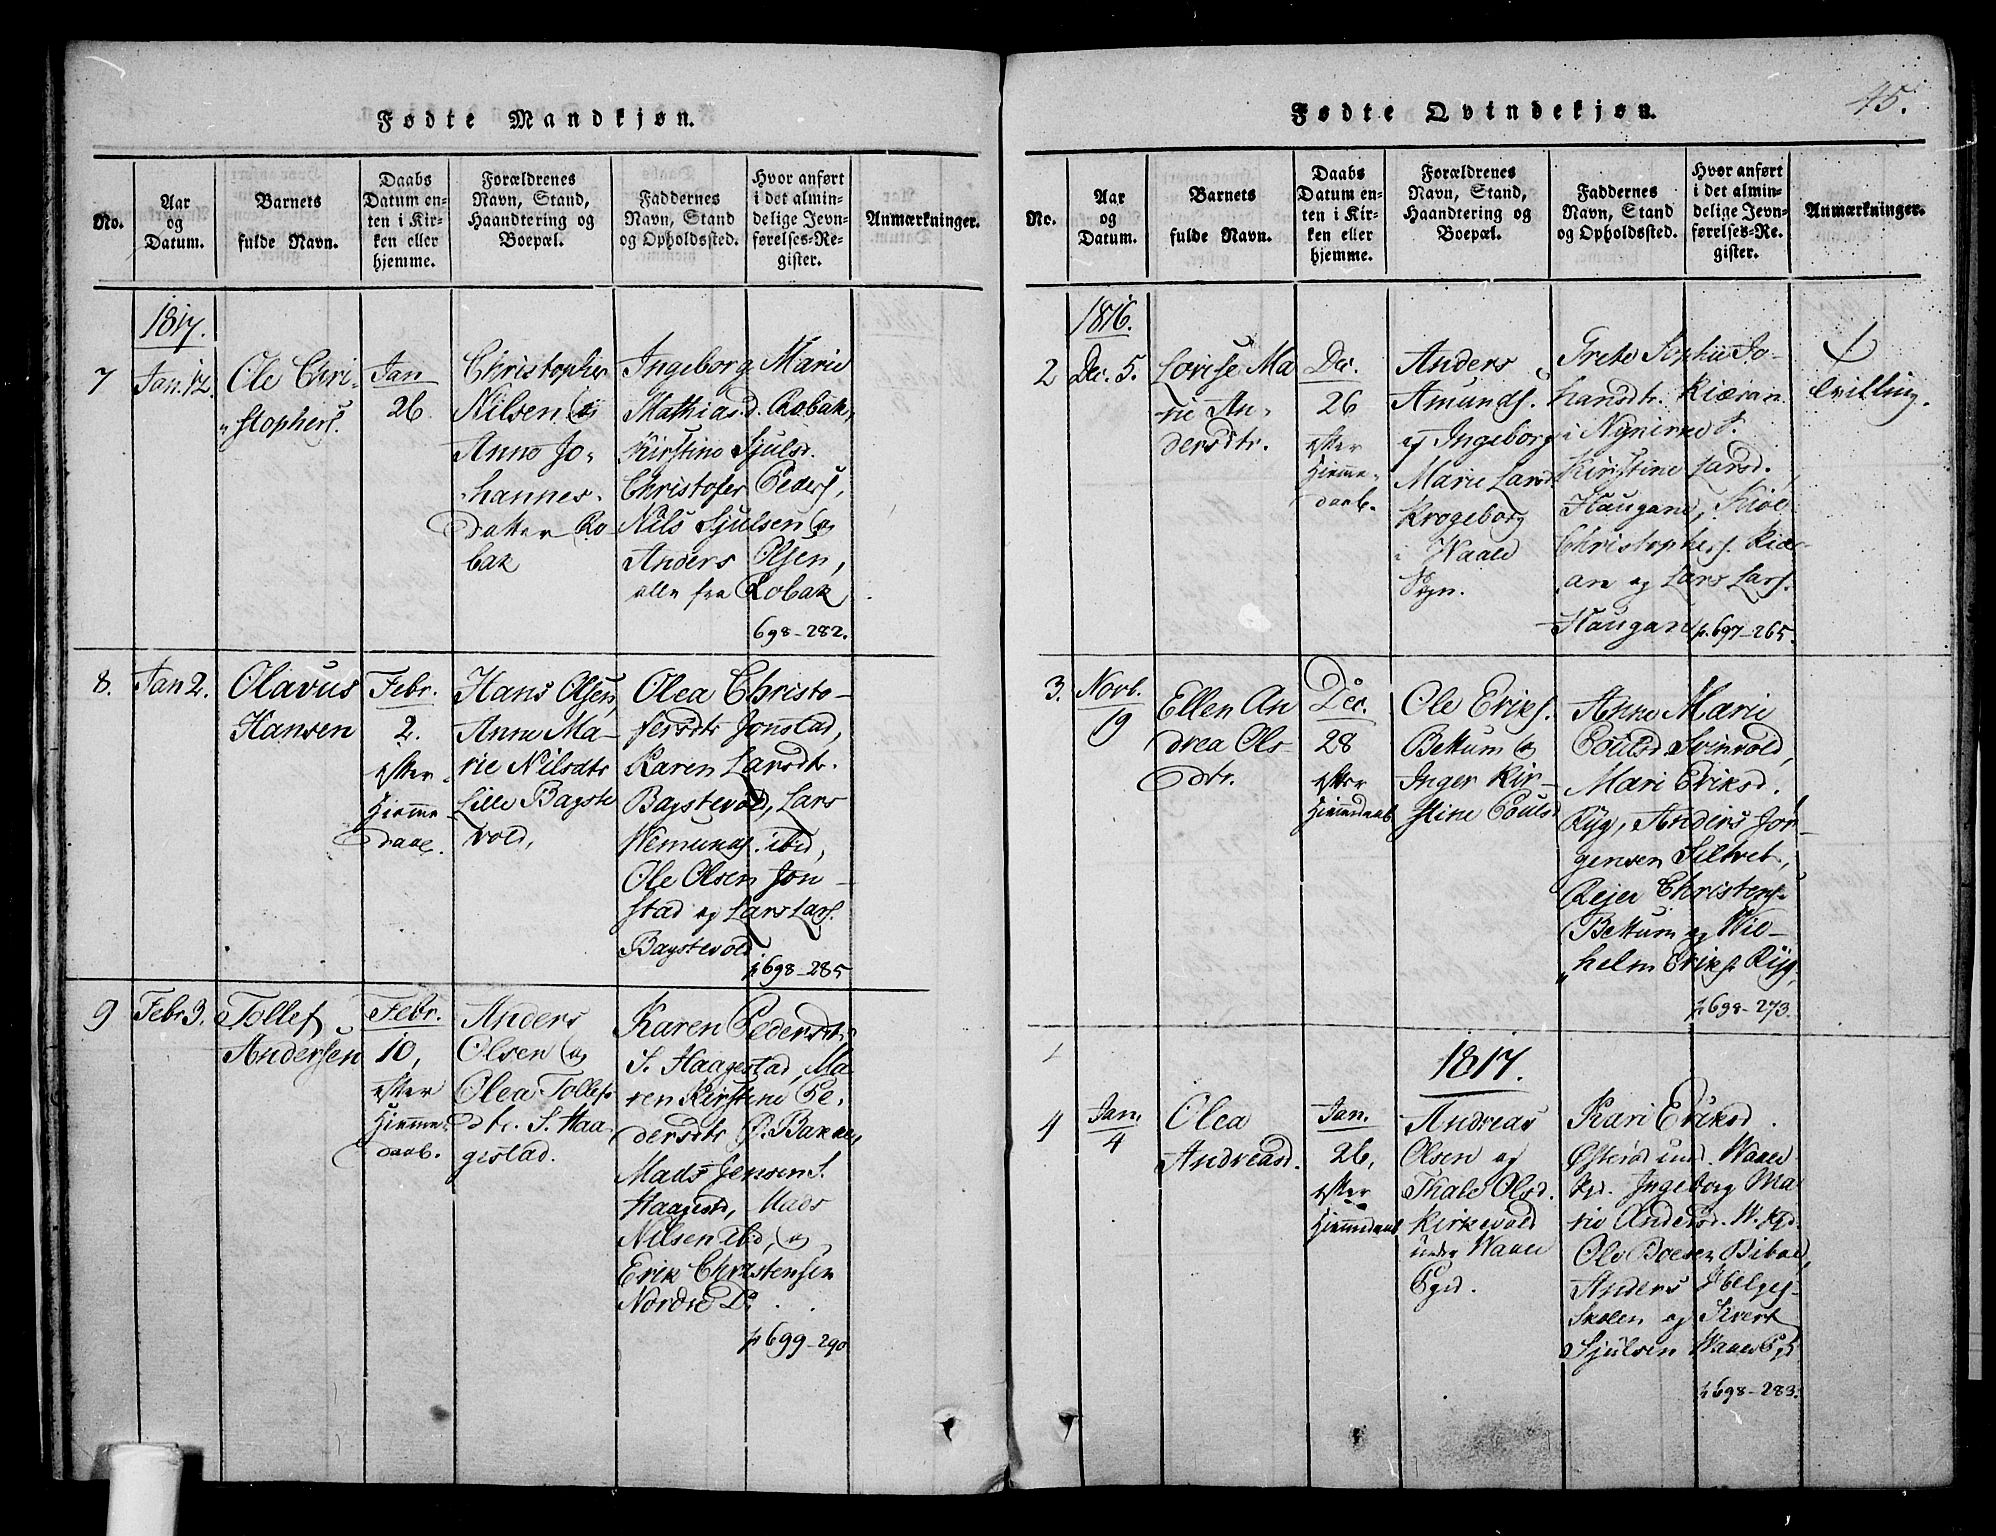 Fødte Mandkjøn.
No.
Aar
og
Datum.
Barnets
fulde Navn.
Daabs
Datum en-
ten i Kir-
ken eller
hjemme.
Forældrenes
Navn, Stand,
Haandtering og
Boepæl.
Faddernes
Navn, Stand
og Opholdssted.
Hvor anført
i det almin-
delige Jevn-
førelses-Re-
gister.
Anmærkninger.
1817.
7
Jan. 12.
Ole Chri-
stophers.
Jan
26.
Christopher
Nilsen og
Anne Jo-
hannes-
datter Ro-
bak
Ingeborg Marie
Mathiasd. Robak,
Kirstine Sjulsd.
Christofer Peders.
Nils Sjulsen og
Anders Olsen,
alle fra Robak
698-282.
8.
Jan 2.
Olavus
Hansen
Febr.
2.
efter
Hiemme
daab.
Hans Olsen,
Anne Ma-
rie Nilsdtr
Lille Bagste
vold,
Olea Christo-
fersdtr Jonstad,
Karen Larsdtr.
Bagstevold, Lars
ibid,
Ole Olsen Jon-
stad og Lars Lars.
Bagstevold
p 698-285
9
Febr 3.
Tollef
Andersen
Febr.
10,
efter
Hiemme-
daab.
Anders
Olsen og
Olea Tollefs
dtr. S. Haa-
gestad.
Karen Pedersdtr
S. Haagestad, Ma-
ren Kirstine Pe-
dersdtr P. Bakke,
Mads Jensen S.
Haagestd, Mads
Nilsen ibid, og
Erik Christensen
Nordre Do.
p 699-290
Fødte Qvindekjøn.
45.
No.
Aar
og
Datum.
Barnets
fulde Navn.
Daabs
Datum en-
ten i Kir-
ken eller
hjemme.
Forældrenes
Navn, Stand,
Haandtering og
Boepæl.
Faddernes
Navn, Stand
og Opholdssted.
Hvor anført
i det almin-
delige Jevn-
førelses-Re-
gister.
Anmærkninger.
1816.
2
Dec. 5.
Lovise Ma
rie An-
dersdtr.
Dec.
26
efter
Hiemme-
daab.
Anders
Amunds.
og Ingeborg
Marie Larsd
Krogeborg
i Waale
Sogn.
Grete Sophie Jo-
hansdtr. Kiæran
i
Kirstine Larsd.
Haugane,
Christophers. Kiær
an og Lars Lars.
Haugan p. 697-265.
tvilling.
3.
Novb.
19
Ellen An
drea Ols
dtr.
Dec.
28
efter
Hiemdaab
Ole Eriks.
Bettum og
Inger Kir-
stine Poulsd
Anne Marie
Poulsd Svinvold,
Mari Eriksd.
Ryg, Anders Jør-
gensen Siltvet,
Rejer Christens.
Bettum og Wil-
helm Eriks. Ryg,
p 698-273.
1817.
4
Jan.
4
Olea
Andreasd.
Jan.
26,
efter
Hiemmdaab
Andreas
Olsen og
Thale Olsd.
Kirkevold
under Waale
Pgd.
Kari Eriksd.
Østerød und. Waale
Pgd. Ingeborg Ma-
rie Andersd. W. Pgd.
Ole Boesen Bibal,
Anders Helges-
Skolen og Sivert
Sjulsen Waale Pgd
p 698-283.